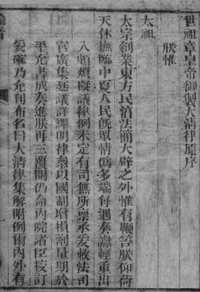 世祖章皇帝御製大清律原序
朕惟
太祖
太宗創業東方民淳法簡大辟之外惟有鞭笞朕仰荷
天休撫臨中夏人民既眾情偽多端每遇奏讞輕重出
入頗煩擬議律例未定有司無所稟承爰敕法司
官廣集廷議詳譯明律參以國制增損劑量期於
平允書成奏進朕再三覆閱仍命內院諸臣校訂
妥確乃允刊布名曰大清律集解附例爾內外有